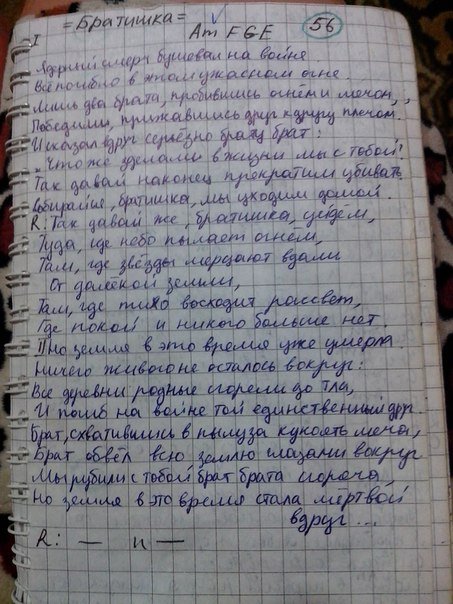 =Братишка=
Am F G E
56
I
Ядрный смерч бушевал на войне
Всё погибло в этом ужасном огне.
Лишь два брата, пробившись огнём и мечом,
Победили, прижавшись друг к другу плечом.
И сказал вдруг серьёзно брату брат:
„Что же сделали в жизни мы с тобой!
Так давай наконец прекратим убивать
Собирайся, братишка, мы уходим домой.
R: Так давай же, братишка, уйдём,
Туда, где небо пылает огнём,
Там, где звёзды мерцают вдали
От далекой земли,
Там, где тихо восходит рассвет,
Где покой и никого больше нет.
II Но земля в это время уже умерла
Ничего живого не осталось вокруг:
Все деревни родные сгорели до тла,
И погиб на войне той единственный друг.
Брат, схватившись в пылу за рукоять меча,
Брат обвёл всю землю глазами вокруг
Мы рубили с тобой брат брата сгоряча
Но земля в это время стала мёртвой
вдруг...
R: — и —